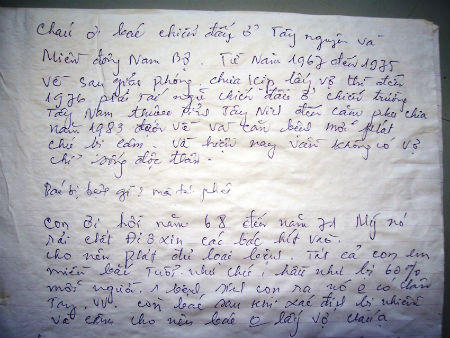 Cháu ơi bác chiến đấy ở Tây nguyên và
Miền đông Nam Bộ. Từ Năm 1967 đến 1975
Về sau giải phóng, chưa kịp lấy vợ thì đến
1976 phải Tái ngũ chiến đấu ở chiến trường
Tây Nam thuộc Tây Ninh đến cămpuchia
năm 1983 được về và căn bệnh mới phát
chứ bị câm. Và hiện nay vẫn không có vợ
chỉ sống độc thân.
Bác bị bệnh gì mà
Con ơi hồi năm 68 đến năm 71 Mỹ nó
rải chất Đi ô xin các bác hít vào.
cho nên phát đủ loại bệnh. Tất cả con em
miền bắc Tuổi như chú, hầu như bị 60%
mỗi người 1 bệnh sinh con ra nó o có chân
Tay. VV. còn bác sau khi xác định bị nhiễm
và câm cho nên bác o lấy vợ cháu ạ